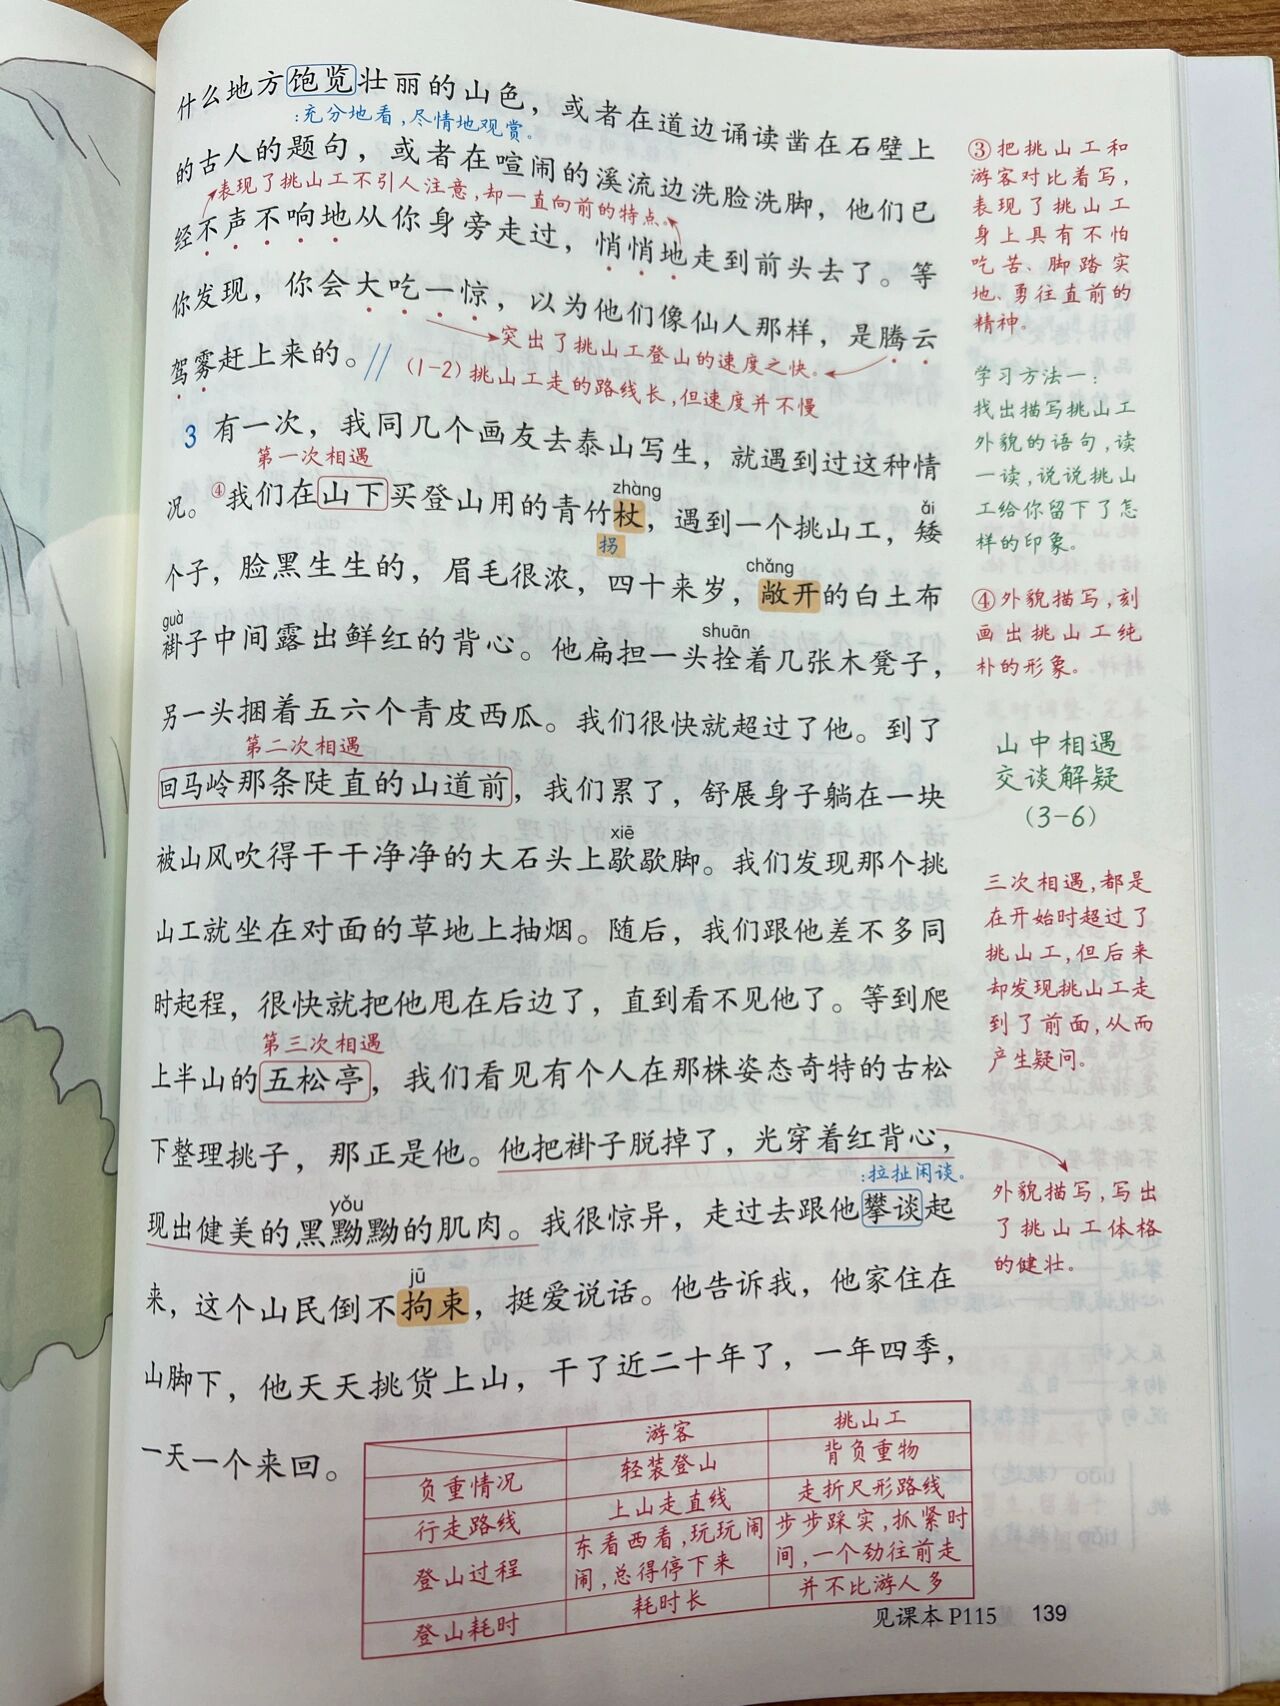 什么地方饱览壮丽的山色，或者在道边诵读凿在石壁上
：充分地看，尽情地观赏。
的古人的题句，或者在喧闹的溪流边洗脸洗脚，他们已
表现了挑山工不引人注意，却一直向前的特点。
经不声不响地从你身旁走过，悄悄地走到前头去了。等
你发现，你会大吃一惊，以为他们像仙人那样，是腾云
突出了挑山工登山的速度之快。
驾雾赶上来的。//
(1-2)挑山工走的路线长，但速度并不慢
3 有一次，我同几个画友去泰山写生，就遇到过这种情
第一次相遇
zhàng
况。④我们在山下买登山用的青竹杖，遇到一个挑山工，矮
ǎi
拐
chǎng
个子，脸黑生生的，眉毛很浓，四十来岁，敞开的白土布
guà
shuān
褂子中间露出鲜红的背心。他扁担一头拴着几张木凳子，
另一头捆着五六个青皮西瓜。我们很快就超过了他。到了
第二次相遇
回马岭那条陡直的山道前，我们累了，舒展身子躺在一块
xiē
被山风吹得干干净净的大石头上歇歇脚。我们发现那个挑
山工就坐在对面的草地上抽烟。随后，我们跟他差不多同
时起程，很快就把他甩在后边了，直到看不见他了。等到爬
第三次相遇
上半山的五松亭，我们看见有个人在那株姿态奇特的古松
下整理挑子，那正是他。他把褂子脱掉了，光穿着红背心，
：拉扯闲谈。
yǒu
现出健美的黑黝黝的肌肉。我很惊异，走过去跟他攀谈起
jū
来，这个山民倒不拘束，挺爱说话。他告诉我，他家住在
山脚下，他天天挑货上山，干了近二十年了，一年四季，
一天一个来回。
游客 挑山工
负重情况 轻装登山 背负重物
行走路线 上山走直线 走折尺形路线
登山过程 东看西看，玩玩闹
闹，总得停下来 步步踩实，抓紧时
间，一个劲往前走
登山耗时 耗时长 并不比游人多
③把挑山工和
游客对比着写，
表现了挑山工
身上具有不怕
吃苦、脚踏实
地、勇往直前的
精神。
学习方法一：
找出描写挑山工
外貌的语句，读
一读，说说挑山
工给你留下了怎
样的印象。
④外貌描写，刻
画出挑山工纯
朴的形象。
山中相遇
交谈解疑
(3-6)
三次相遇，都是
在开始时超过了
挑山工，但后来
却发现挑山工走
到了前面，从而
产生疑问。
外貌描写，写出
了挑山工体格
的健壮。
见课本P115 139